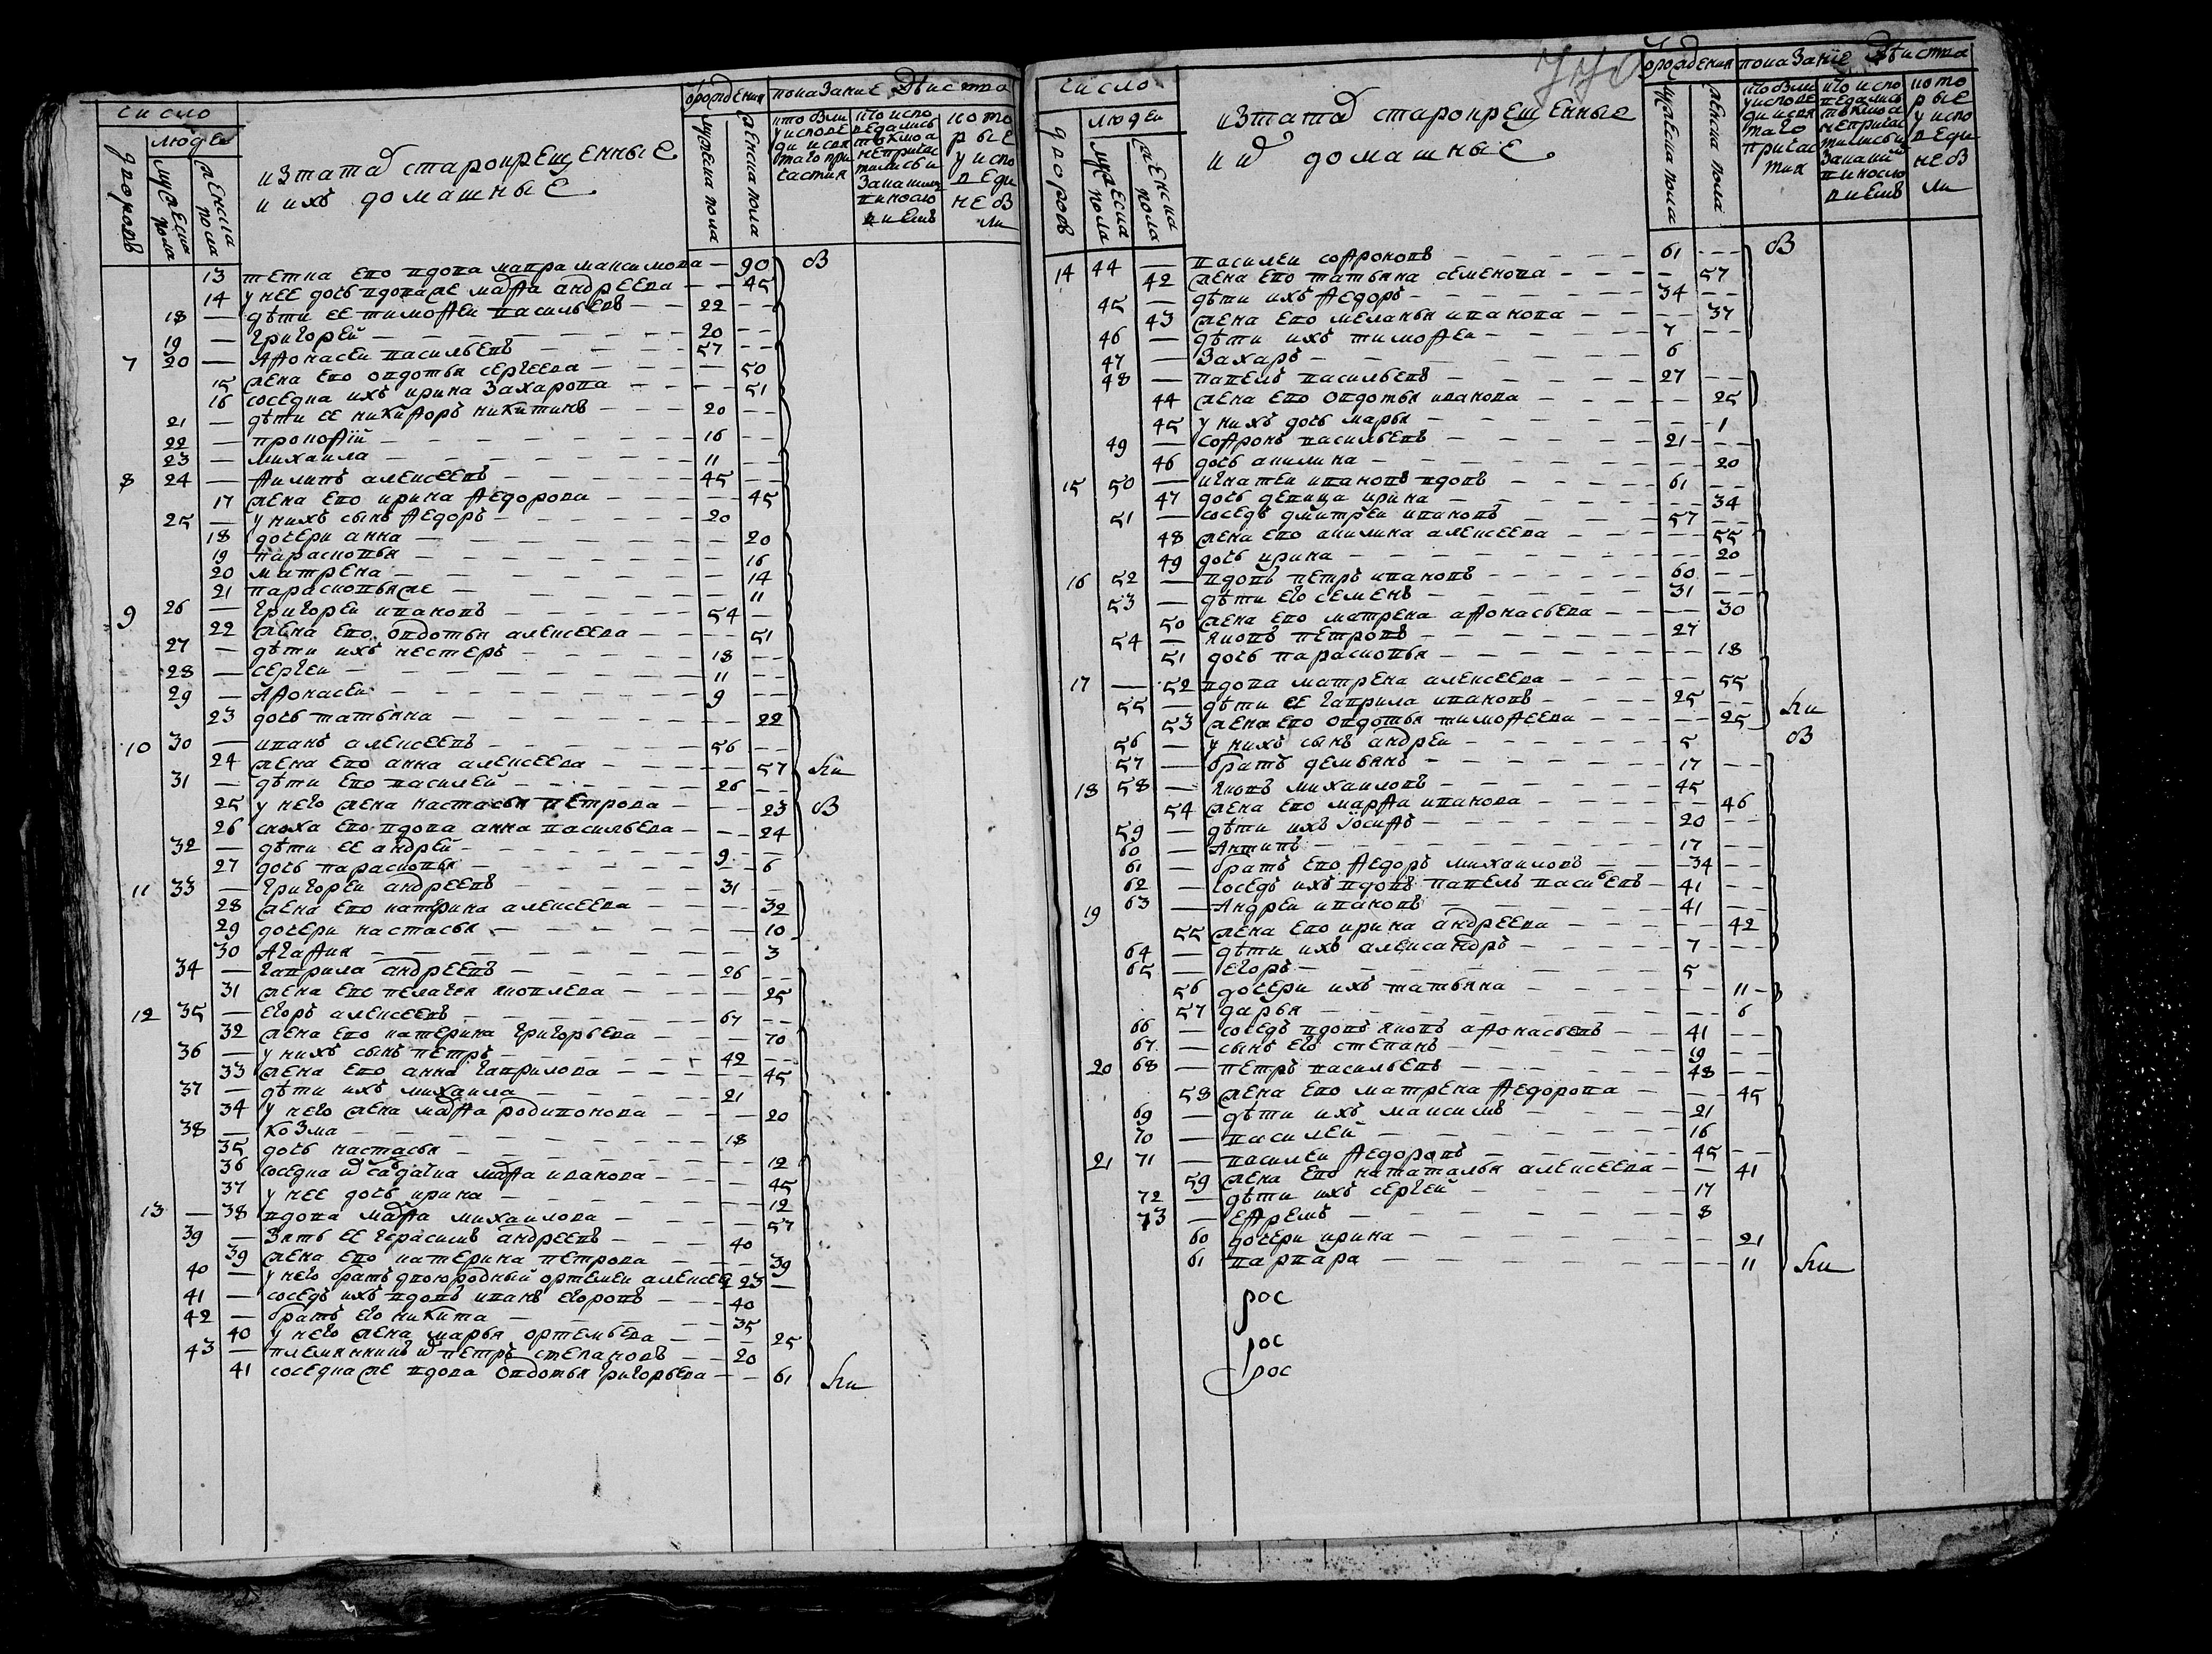 число
людеи
дворовъ
мужеска пола
женска пола
изтатар старокрещенные
и ихъ домашные
от рождения
мужеска пола
женска пола
показание действа
кто были у исповеди и святаго причастия
кто исповедались токмо а не причастились и за каким виною
которые у исповеди не были
13 тетка ево вдова мавра максимова — 90 б
14 у нее дочь вдова же марфа андреева — — 45
18 — дѣти ее тимофеи васильевъ — 22 — —
19 — григореи — 20 — —
7 20 — Афонасеи васильевъ — 57 — —
15 жена ево овдотья сергеева — — 50
16 соседка ихъ ирина захарова — — 51
21 — дѣти ее никифоръ никитинъ — 20 — —
22 — прокофiй — 16 — —
23 — михаила — 11 — —
8 24 — Филипъ алексеевъ — 45 — —
17 жена ево ирина федорова — — 45
25 — у нихъ сынъ федоръ — 20
18 дочери анна — — 20
19 парасковья — — 16
20 матрена — — 14
21 парасковья же — — 11
9 26 — григореи ивановъ — 54 —
22 жена ево овдотья алексеева — — 51
27 — дѣти ихъ нестеръ — 18 — —
28 — сергеи — 11 — —
29 — Афонасеи — 9 — —
23 дочь татьяна — — 22
10 30 — иванъ алексеевъ — 56 — —
24 жена ево анна алексеева — — 57 ли
31 — дѣти ево василеи — 26 — —
25 у него жена настасья петрова — — 23 б
26 сноха ево вдова анна васильева — — 24
32 — дѣти ее андрей — 9 — —
27 дочь парасковья — — 6
11 33 — григореи андреевъ — 31 — —
28 жена ево катерина алексеева — — 32
29 дочери настасья — — 10
30 Агафия — — 3
34 — гаврила андреевъ — 26 — —
31 жена ево пелагея яковлева — — 25
12 35 — егоръ алексеевъ — 67 — —
32 жена ево катерина григорьева — — 70
36 — у нихъ сынъ петръ — 42 — —
33 жена ево анна гаврилова — — 45
37 — дѣти ихъ михаила — 21
34 у него жена марфа родионова — — 20
38 — козма — 18
35 дочь настасья — — 12
36 соседка их салдатка марфа иванова — — 45
37 у нее дочь ирина — — 12
13 — 38 вдова марфа михаилова — — 57
39 — зять ее герасимъ андреевъ — 40
39 жена ево катерина петрова — — 39
40 — у него братъ двоюродный ортемеи алексеев 23 —
41 — соседъ ихъ вдовъ иванъ егоровъ — 40
42 — братъ его никита — 35
40 у него жена марья ортемьева — — 25
43 — племянникъ их петръ степановъ — 20
41 соседка же вдова овдотья григорьева — — 61 ли
число
людеи
дворовъ
мужеска пола
женска пола
изтатар старокрещенные
и их домашные
от рождения
мужеска пола
женска пола
показанiе действа
кто были у исповеди и святаго причастия
кто исповедались токмо а не причастились и за каким виною
которые у исповеди не были
14 44 — василеи софроновъ — 61 — — б
42 жена ево татьяна семенова — — 57
45 — дѣти ихъ федоръ — 34 — —
43 жена ево меланья иванова — — 37
46 — дѣти ихъ тимофеи — 7 — —
47 — захаръ — 6
48 — павелъ васильевъ — 27 — —
44 жена ево овдотья иванова — — 25
45 у нихъ дочь марья — — 1
49 — софронъ васильевъ — 21 — —
46 дочь акилина — — 20
15 50 — игнатеи ивановъ вдовъ — 61 — —
47 дочь девица ирина — — 34
51 — соседъ дмитреи ивановъ — 57 — —
48 жена ево акилина алексеева — — 55
49 дочь ирина — — 20
16 52 — вдовъ петръ ивановъ — 60 — —
53 — дѣти его семенъ — 31 — —
50 жена ево матрена афонасьева — — 30
54 — яковъ петровъ — 27
51 дочь парасковья — — 18
17 — 52 вдова матрена алексеева — — 55
55 — дѣти ее гаврила ивановъ — 25 — —
53 жена ево овдотья тимофеева — — 25 ли
56 — у нихъ сынъ андреи — 5 б
57 — братъ демьянъ — 17 — —
18 58 — яковъ михаиловъ — 45
54 жена ево марфа иванова — — 46
59 — дѣти ихъ iосифъ — 20 — —
60 — Антипъ — 17 — —
61 — братъ ево федоръ михаиловъ — 34 — —
62 — соседъ ихъ вдовъ павелъ васильевъ — 41 — —
19 63 — Андреи ивановъ — 41 — —
55 жена ево ирина андреева — — 42
64 — дѣти ихъ александръ — 7 — —
65 — егоръ — 5
56 дочери ихъ татьяна — — 11
57 дарья — — 6
66 — соседъ вдовъ яковъ афонасьевъ — 41 — —
67 — сынъ его степанъ — 19 — —
20 68 — петръ васильевъ — 48 — —
58 жена ево матрена федорова — — 45
69 — дѣти ихъ максимъ — 21
70 — василеи — 16
21 71 — василеи федоровъ — 45 — —
59 жена ево наталья алексеева — — 41
72 — дѣти ихъ сергеи — 17
73 — ефремъ — 8
60 дочери ирина — — 21
61 варвара — — 11 ли
рос
рос
рос